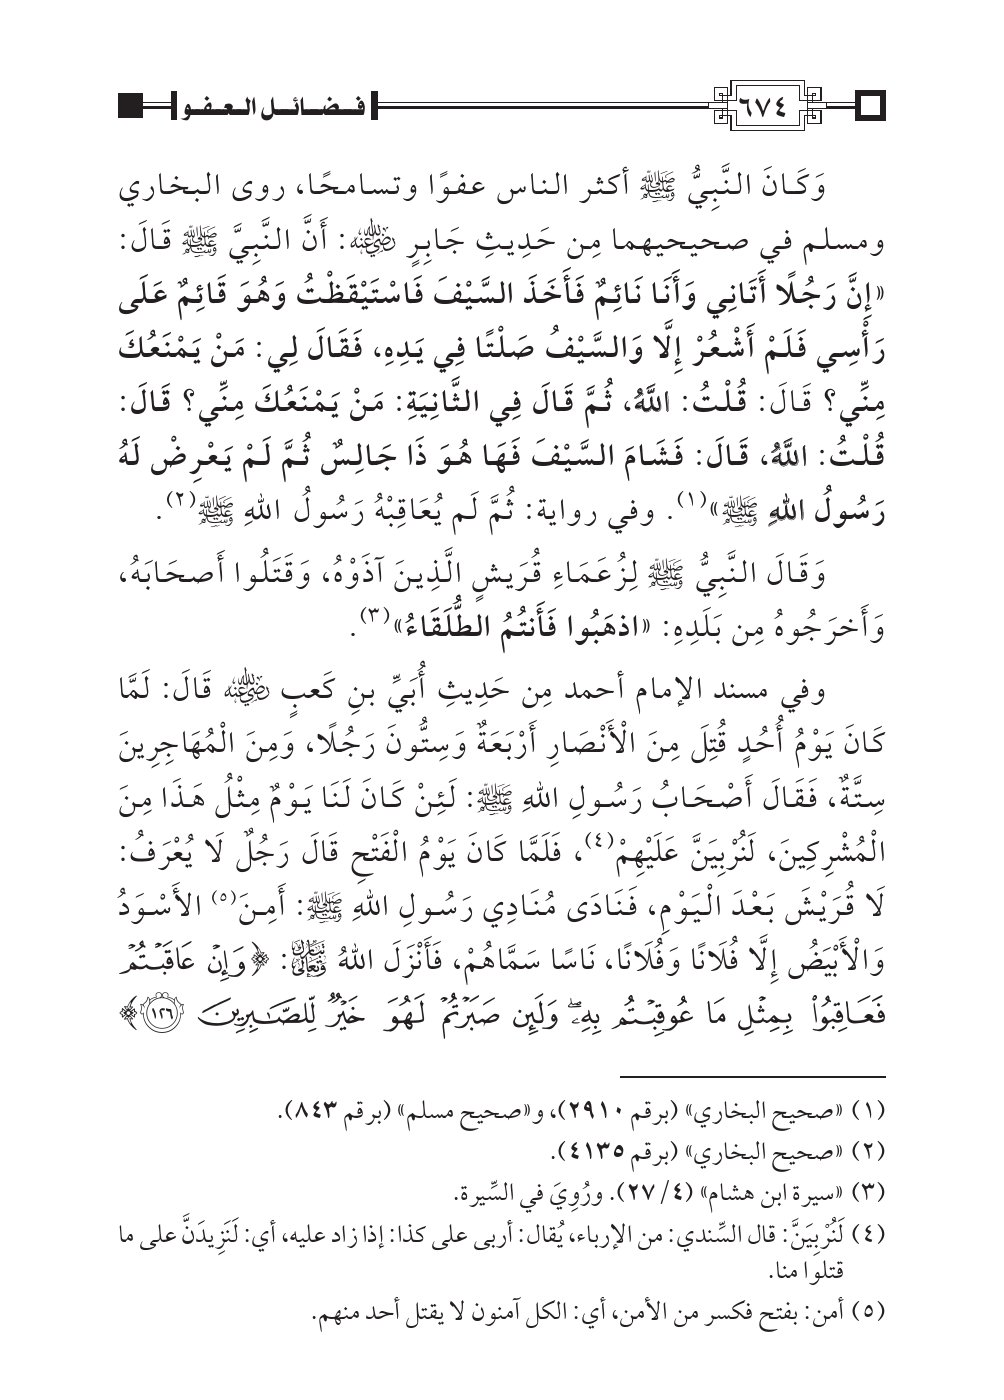 ٦٧٤ فضائل العفو
وَكَانَ النَّبِيُّ ﷺ أكثر الناس عفوًا وتسامحًا، روى البخاري
ومسلم في صحيحيهما مِن حَدِيثِ جَابِرٍ رضي الله عنه: أَنَّ النَّبِيَّ ﷺ قَالَ:
«إِنَّ رَجُلًا أَتَانِي وَأَنَا نَائِمٌ فَأَخَذَ السَّيْفَ فَاسْتَيْقَظْتُ وَهُوَ قَائِمٌ عَلَى
رَأْسِي فَلَمْ أَشْعُرْ إِلَّا وَالسَّيْفُ صَلْتًا فِي يَدِهِ، فَقَالَ لِي: مَنْ يَمْنَعُكَ
مِنِّي؟ قَالَ: قُلْتُ: اللَّهُ، ثُمَّ قَالَ فِي الثَّانِيَةِ: مَنْ يَمْنَعُكَ مِنِّي؟ قَالَ:
قُلْتُ: اللَّهُ، قَالَ: فَشَامَ السَّيْفَ فَهَا هُوَ ذَا جَالِسٌ ثُمَّ لَمْ يَعْرِضْ لَهُ
رَسُولُ اللهِ ﷺ»(١). وفي رواية: ثُمَّ لَم يُعَاقِبْهُ رَسُولُ اللهِ ﷺ(٢).
وَقَالَ النَّبِيُّ ﷺ لِزُعَمَاءِ قُرَيشٍ الَّذِينَ آذَوْهُ، وَقَتَلُوا أَصحَابَهُ،
وَأَخرَجُوهُ مِن بَلَدِهِ: «اذهَبُوا فَأَنتُمُ الطُّلَقَاءُ»(٣).
وفي مسند الإمام أحمد مِن حَدِيثِ أُبَيِّ بنِ كَعبٍ رضي الله عنه قَالَ: لَمَّا
كَانَ يَوْمُ أُحُدٍ قُتِلَ مِنَ الْأَنْصَارِ أَرْبَعَةٌ وَسِتُّونَ رَجُلًا، وَمِنَ الْمُهَاجِرِينَ
سِتَّةٌ، فَقَالَ أَصْحَابُ رَسُولِ اللهِ ﷺ: لَئِنْ كَانَ لَنَا يَوْمٌ مِثْلُ هَذَا مِنَ
الْمُشْرِكِينَ، لَنُرْبِيَنَّ عَلَيْهِمْ(٤)، فَلَمَّا كَانَ يَوْمُ الْفَتْحِ قَالَ رَجُلٌ لَا يُعْرَفُ:
لَا قُرَيْشَ بَعْدَ الْيَوْمِ، فَنَادَى مُنَادِي رَسُولِ اللهِ ﷺ: أَمِنَ(٥) الأَسْوَدُ
وَالْأَبْيَضُ إِلَّا فُلَانًا وَفُلَانًا، نَاسًا سَمَّاهُمْ، فَأَنْزَلَ اللهُ تبارك وتعالى: ﴿وَإِنْ عَاقَبْتُمْ
فَعَاقِبُوا۟ بِمِثْلِ مَا عُوقِبْتُم بِهِۦ ۖ وَلَئِن صَبَرْتُمْ لَهُوَ خَيْرٌ لِّلصَّـٰبِرِينَ ١٢٦﴾
(١) «صحيح البخاري» (برقم ٢٩١٠)، و«صحيح مسلم» (برقم ٨٤٣).
(٢) «صحيح البخاري» (برقم ٤١٣٥).
(٣) «سيرة ابن هشام» (٤/ ٢٧). ورُوِيَ في السِّيرة.
(٤) لَنُرْبِيَنَّ: قال السِّندي: من الإرباء، يُقال: أربى على كذا: إذا زاد عليه، أي: لَنَزِيدَنَّ على ما
قتلوا منا.
(٥) أمن: بفتح فكسر من الأمن، أي: الكل آمنون لا يقتل أحد منهم.